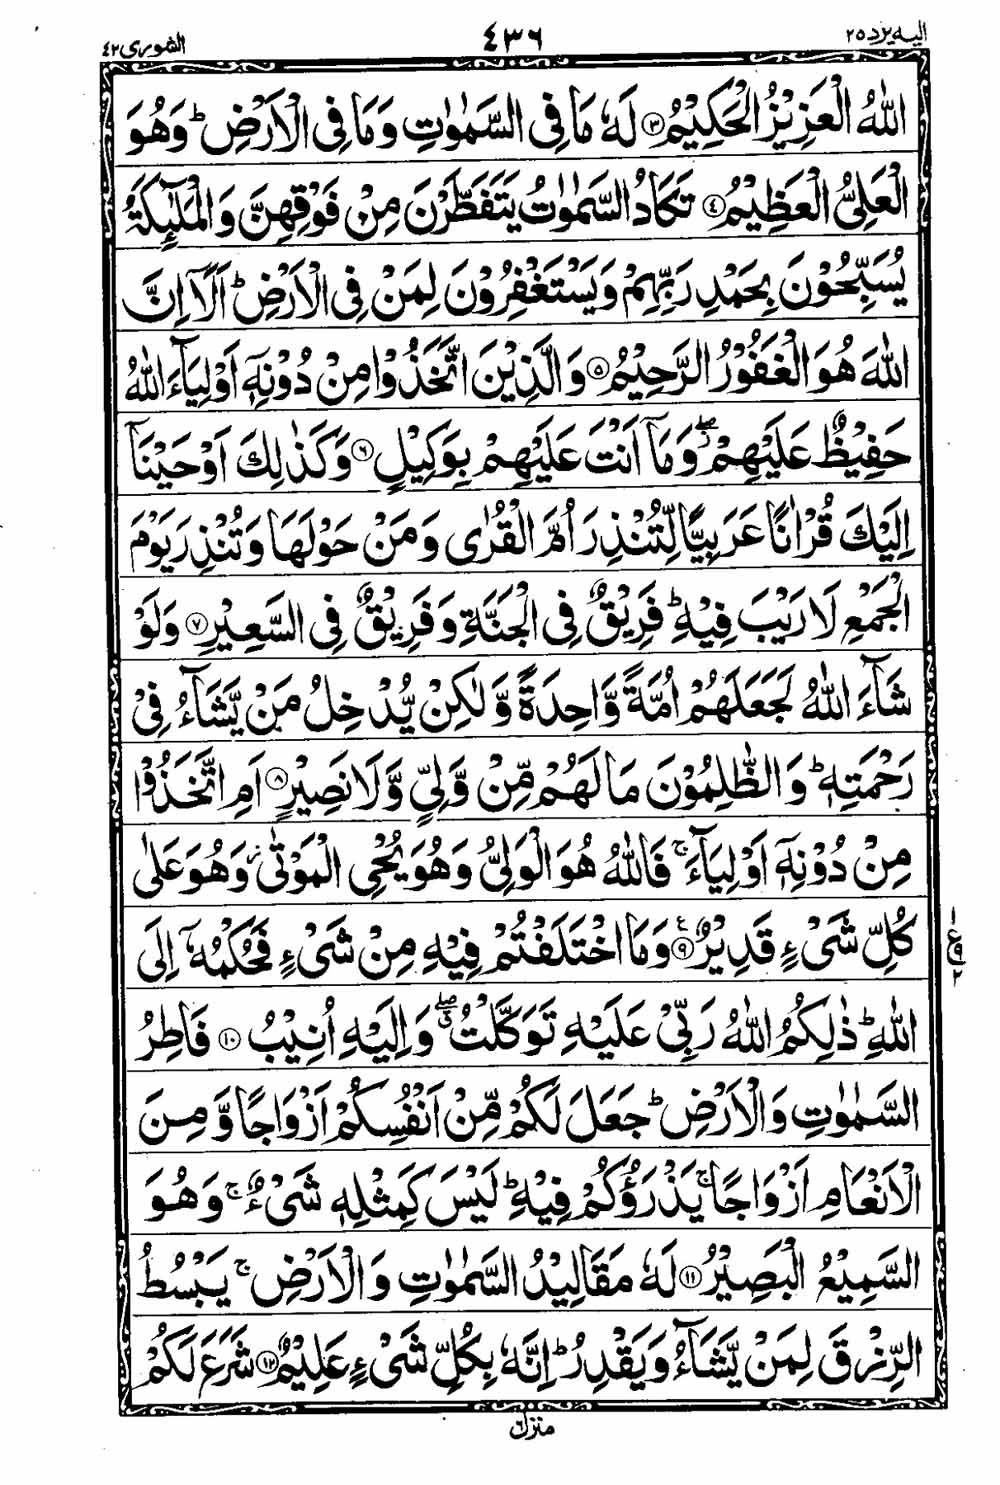 اليه يرد ٢٥ ٤٣٦ الشورى ٤٢
اللّٰهُ الْعَزِيْزُ الْحَكِيْمُ ۝٣ لَهٗ مَا فِى السَّمٰوٰتِ وَمَا فِى الْاَرْضِ ؕ وَهُوَ
الْعَلِىُّ الْعَظِيْمُ ۝٤ تَكَادُ السَّمٰوٰتُ يَتَفَطَّرْنَ مِنْ فَوْقِهِنَّ وَالْمَلٰٓئِكَةُ
يُسَبِّحُوْنَ بِحَمْدِ رَبِّهِمْ وَيَسْتَغْفِرُوْنَ لِمَنْ فِى الْاَرْضِ ؕ اَلَاۤ اِنَّ
اللّٰهَ هُوَ الْغَفُوْرُ الرَّحِيْمُ ۝٥ وَالَّذِيْنَ اتَّخَذُوْا مِنْ دُوْنِهٖۤ اَوْلِيَآءَ اللّٰهُ
حَفِيْظٌ عَلَيْهِمْ ۖؗ وَمَاۤ اَنْتَ عَلَيْهِمْ بِوَكِيْلٍ ۝٦ وَكَذٰلِكَ اَوْحَيْنَاۤ
اِلَيْكَ قُرْاٰنًا عَرَبِيًّا لِّتُنْذِرَ اُمَّ الْقُرٰى وَمَنْ حَوْلَهَا وَتُنْذِرَ يَوْمَ
الْجَمْعِ لَا رَيْبَ فِيْهِ ؕ فَرِيْقٌ فِى الْجَنَّةِ وَفَرِيْقٌ فِى السَّعِيْرِ ۝٧ وَلَوْ
شَآءَ اللّٰهُ لَجَعَلَهُمْ اُمَّةً وَّاحِدَةً وَّلٰكِنْ يُّدْخِلُ مَنْ يَّشَآءُ فِىْ
رَحْمَتِهٖ ؕ وَالظّٰلِمُوْنَ مَا لَهُمْ مِّنْ وَّلِىٍّ وَّلَا نَصِيْرٍ ۝٨ اَمِ اتَّخَذُوْا
مِنْ دُوْنِهٖۤ اَوْلِيَآءَ ۚ فَاللّٰهُ هُوَ الْوَلِىُّ وَهُوَ يُحْىِ الْمَوْتٰى ؗ وَهُوَ عَلٰى
كُلِّ شَىْءٍ قَدِيْرٌ ۝٩ وَمَا اخْتَلَفْتُمْ فِيْهِ مِنْ شَىْءٍ فَحُكْمُهٗۤ اِلَى
اللّٰهِ ؕ ذٰلِكُمُ اللّٰهُ رَبِّىْ عَلَيْهِ تَوَكَّلْتُ ۖۗ وَاِلَيْهِ اُنِيْبُ ۝١٠ فَاطِرُ
السَّمٰوٰتِ وَالْاَرْضِ ؕ جَعَلَ لَكُمْ مِّنْ اَنْفُسِكُمْ اَزْوَاجًا وَّمِنَ
الْاَنْعَامِ اَزْوَاجًا ۚ يَذْرَؤُكُمْ فِيْهِ ؕ لَيْسَ كَمِثْلِهٖ شَىْءٌ ۚ وَهُوَ
السَّمِيْعُ الْبَصِيْرُ ۝١١ لَهٗ مَقَالِيْدُ السَّمٰوٰتِ وَالْاَرْضِ ۚ يَبْسُطُ
الرِّزْقَ لِمَنْ يَّشَآءُ وَيَقْدِرُ ؕ اِنَّهٗ بِكُلِّ شَىْءٍ عَلِيْمٌ ۝١٢ شَرَعَ لَكُمْ
ع ١ ٩ ٢
منزل ٦